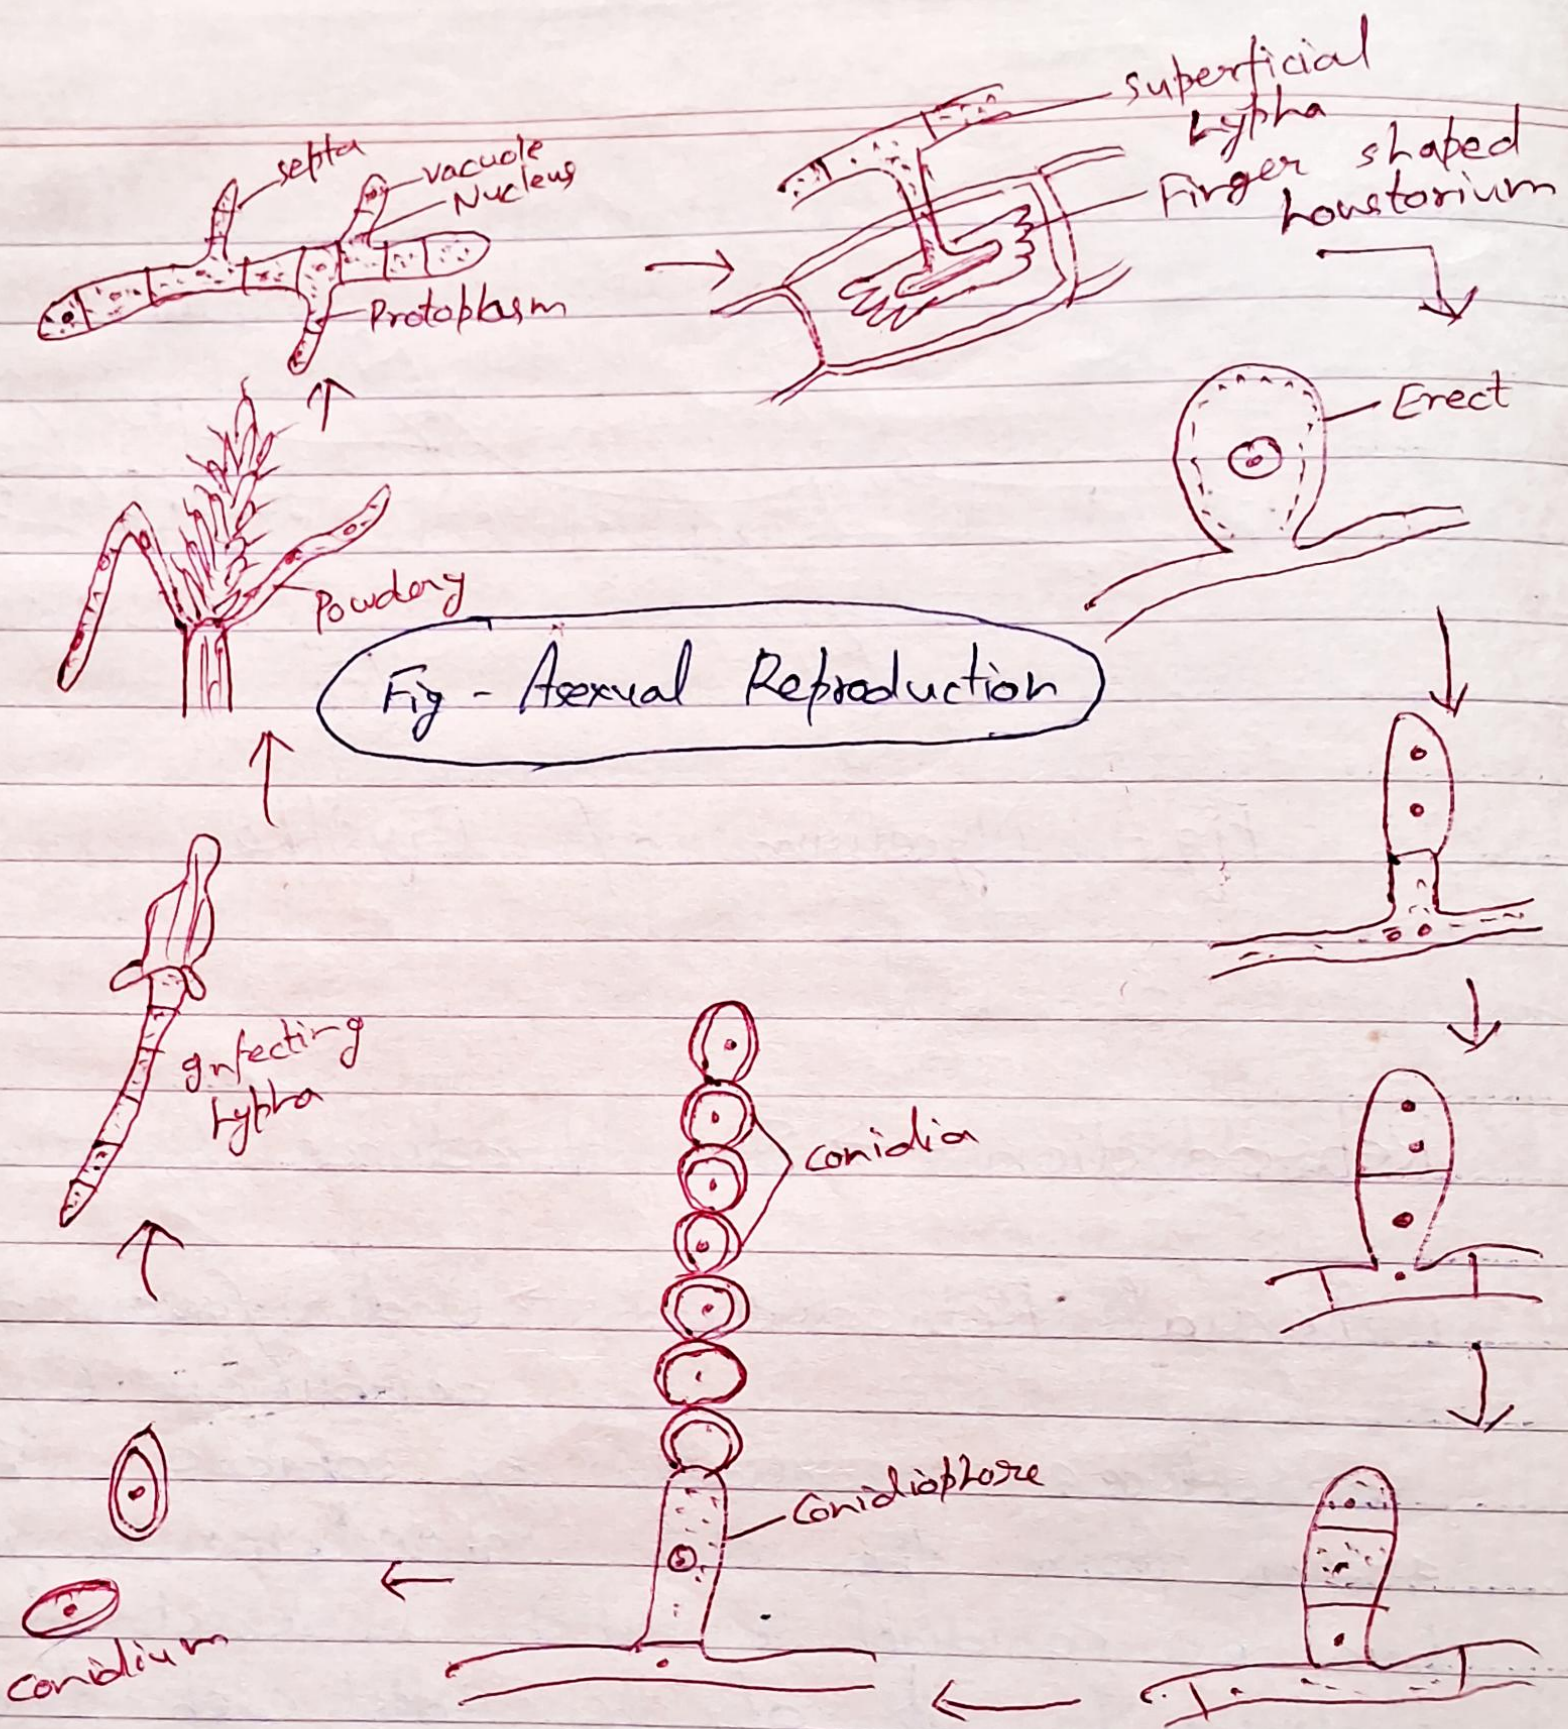 septa
vacuole
Nucleus
Protoplasm
Superficial
hypha
Finger shaped
houstorium
Erect
Powdery
Fig - Asexual Reproduction
Infecting
hypha
conidia
Conidiophore
conidium